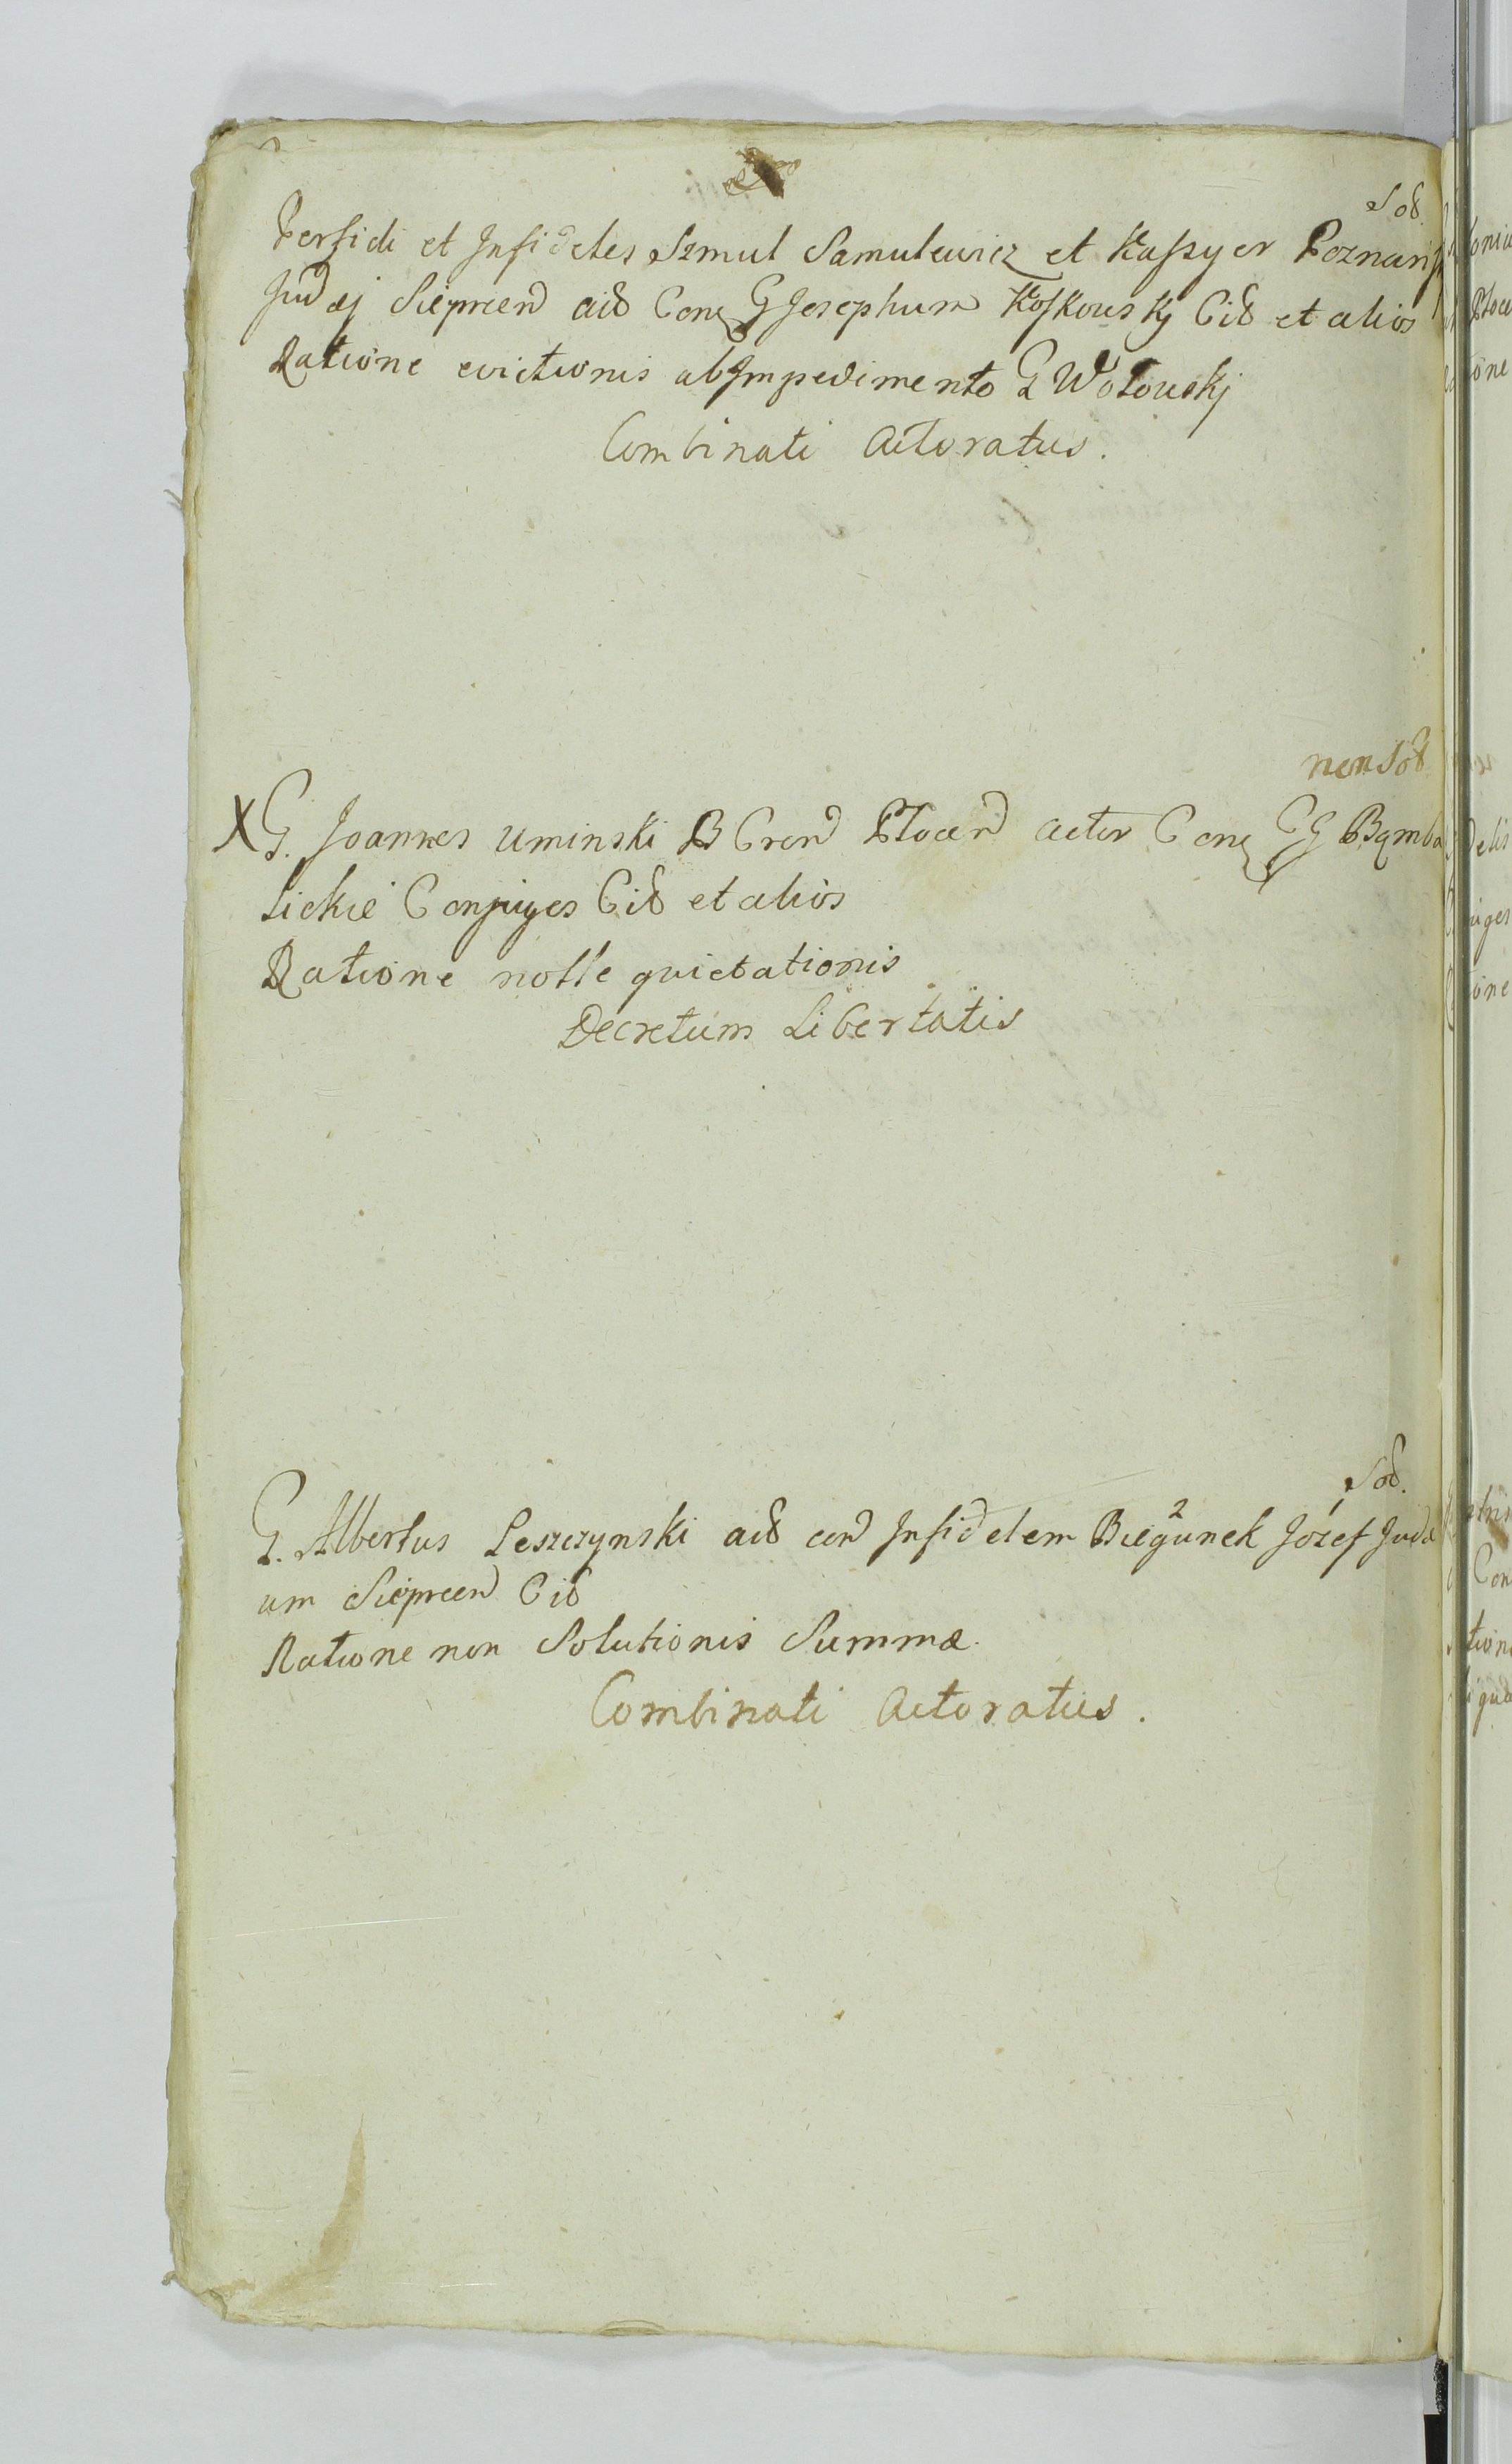 Sol
Perfidi et Infideles Szmul Samulewicz et Kaszyer Poznańs
Judæj Sieprcen actó Conq G Josephum Koskowskj Citó et alios
Ratione evictionis ab Impedimento G Wołowskj
Combinati Actoratus.
non Sol
X G. Joannes Uminski B Cron Płocen actor Conq GG Bąmba
lickie Conjuges Citó et alios
Ratione nolle quietationis
Decretum Libertatis
Sol.
G. Albertus Leszczynski actó con Infidelem Biegunek 2 Józef 1 Judæ
um Sieprcen Citó
Ratione non Solutionis Summæ.
Combinati Actoratus.